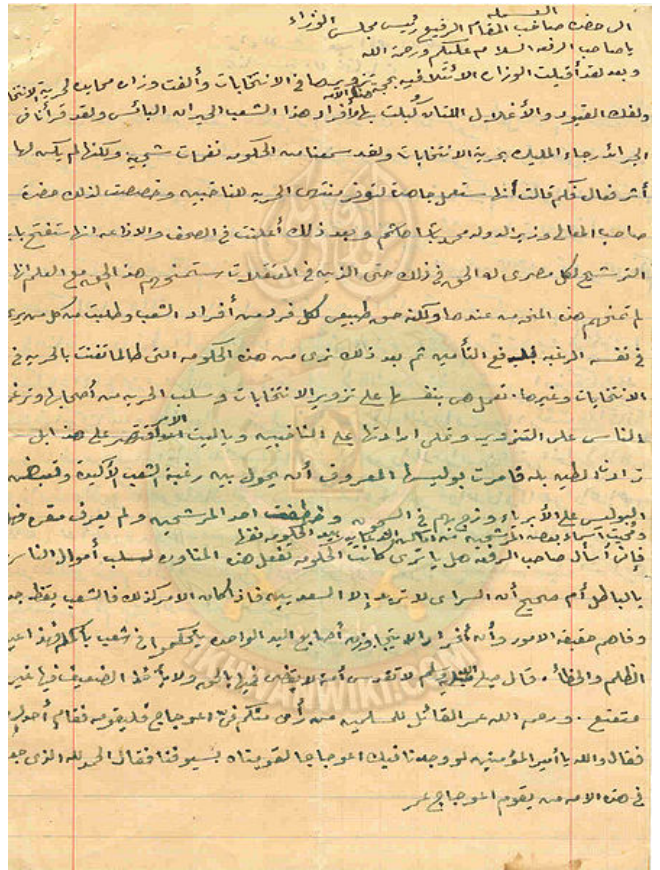 الى حضرة صاحب المقام الرفيع رئيس مجلس الوزراء
يا صاحب الرفعه السلام عليكم ورحمة الله
وبعد لقد أقيلت الوزاره الائتلافيه بحجة تزويرها في الانتخابات وألفت وزاره محايده لحرية الانتخا
ولفك القيود والأغلال اللتان كُبلت بها أفراد هذا الشعب الحيران البائس ولقد قرأنا في
الجرائد رجاء المليك بحرية الانتخابات ولقد سمعنا من الحكومه نغمات شجيه ولكنها لم يكن لها
أثر فعال فكم قالت أنها ستعمل جاهدة لتوفر منتهى الحريه للناخبين وخصصت لذلك حضرة
صاحب المعالى وزير الدوله محمد باشا هاشم وبعد ذلك أعلنت في الصحف والاذاعه انها ستفتح باب
الترشيح لكل مصرى له الحق في ذلك حتى الذين في المعتقلات ستمنحهم هذا الحق مع العلم انها
لم تمنحهم هذه المنحه من عندها ولكنه حق طبيعى لكل فرد من أفراد الشعب وطلبت من كل من يرى
في نفسه الرغبه دفع التأمين ثم بعد ذلك نرى من هذه الحكومه التى طالما تغنت بالحريه في
الانتخابات وغيرها تعمل هى بنفسها على تزوير الانتخابات وسلب الحريه من أصحابها وترغم
الناس على التزوير وتملى ارادتها على الناخبين وياليت الامر اقتصر على هذا بل
زادت بله قامت بوليسها المعروف أن يحول بين رغبة الشعب الأكيدة وقبض
البوليس على الأبرياء وزج بهم في السجون و احد المرشحين ولم يعرف مقره
ومحيت أسماء بعض المرشحين من
فإنى أسأل صاحب الرفعه هل يا ترى كانت الحكومه تفعل هذه المناوره لسلب أموال الناس
بالباطل أم صحيح أن السراى لا تريد إلا السعديين فاذا كان الامر كذلك فالشعب يقظ جد
وفاهم حقيقة الامور وأن أفرادا لا يتجاوزون أصابع اليد الواحده يتحكموا في شعب بأكمله فهذا عين
الظلم والخطأ. قال صلى الله عليه وسلم لا تقدس أمة لا يقضى فيها بالحق ولا يأخذ الضعيف فيها غير
متعتع. ورحم الله عمر القائل للمسلمين من رأى منكم فىّ اعوجاج فليقومه فقام أحدهم
فقال والله يا أمير المؤمنين لو وجدنا فيك اعوجاجا لقومناه بسيوفنا فقال الحمد لله الذى جعل
في هذه الامه من يقوم اعوجاج عمر
IKHWANWIKI.COM